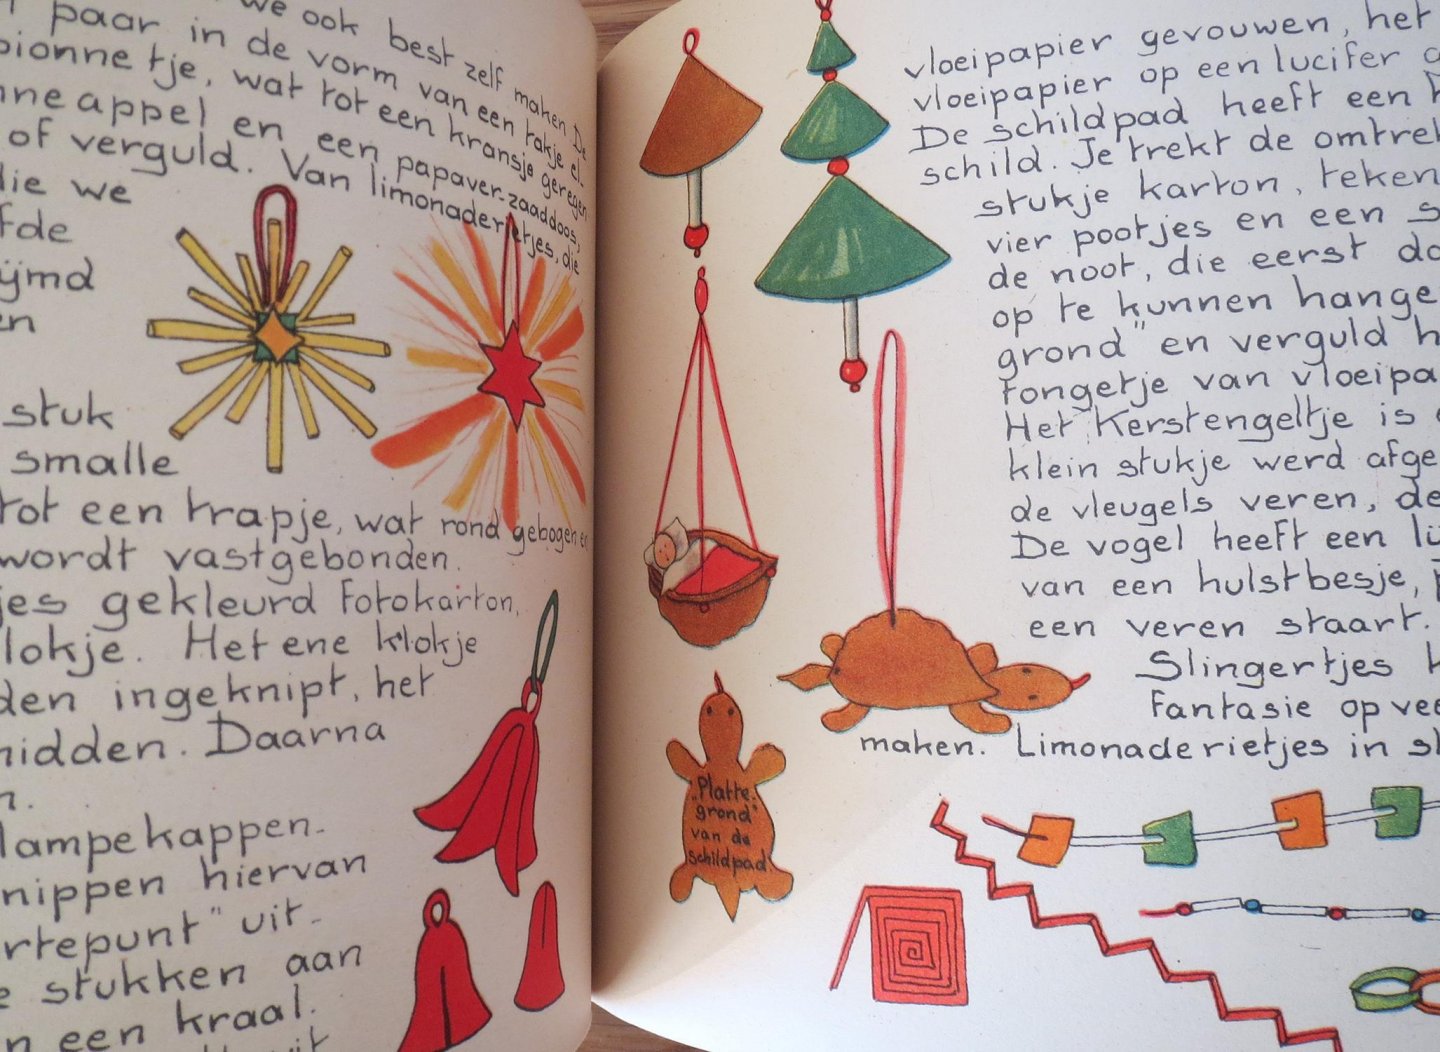 we ook best zelf maken. De
paar in de vorm van een takje el-
pionnetje, wat tot een kransje geregen
appel en een papaver-zaaddoos,
of verguld. Van limonaderietjes, die
die we
fde
ijmd
en
stuk
smalle
tot een trapje, wat rond gebogen en
wordt vastgebonden.
jes gekleurd fotokarton,
lokje. Het ene klokje
den ingeknipt, het
midden. Daarna
n.
lampekappen.
nippen hiervan
rtepunt" uit-
e stukken aan
n een kraal.
uit
vloeipapier gevouwen, het
vloeipapier op een lucifer
De schildpad heeft een
schild. Je trekt de omtrek
stukje karton, teken
vier pootjes en een s
de noot, die eerst do
op te kunnen hange
grond" en verguld h
tongetje van vloeipa
Het Kerstengeltje is
klein stukje werd afge
de vleugels veren, de
De vogel heeft een lu
van een hulstbesje, p
een veren staart.
Slingertjes
fantasie op vee
maken. Limonaderietjes in st
"Platte-
grond"
van de
schildpad.